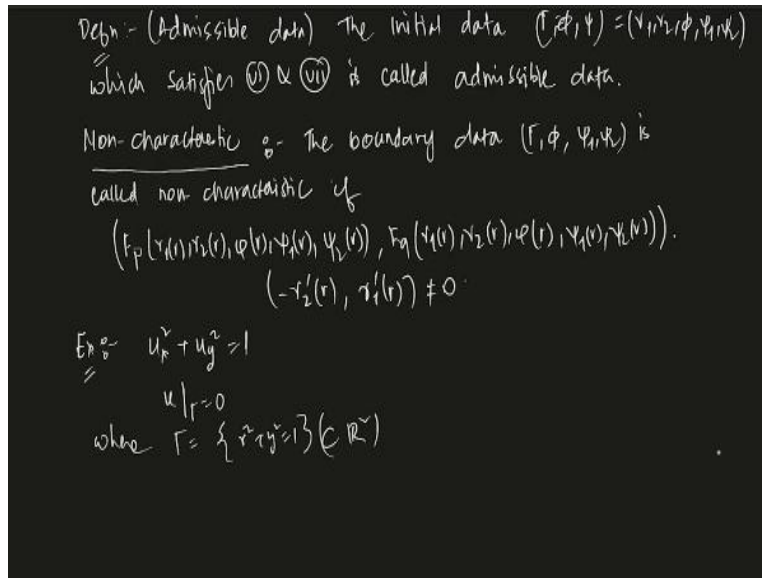 Defn:- (Admissible data) The initial data (Γ, φ, ψ) = (γ₁, γ₂, φ, ψ₁, ψ₂)
which satisfies (vi) & (vii) is called admissible data.
Non-charactaeistic :- The boundary data (Γ, φ, ψ₁, ψ₂) is
called non charactaistic if
(F_p(γ₁(r), γ₂(r), φ(r), ψ₁(r), ψ₂(r)), F_q(γ₁(r), γ₂(r), φ(r), ψ₁(r), ψ₂(r))).
(-γ₂'(r), γ₁'(r)) ≠ 0.
Ex:- u_x² + u_y² = 1
u|_Γ = 0
where Γ = {x² + y² = 1} (⊂ ℝ²)